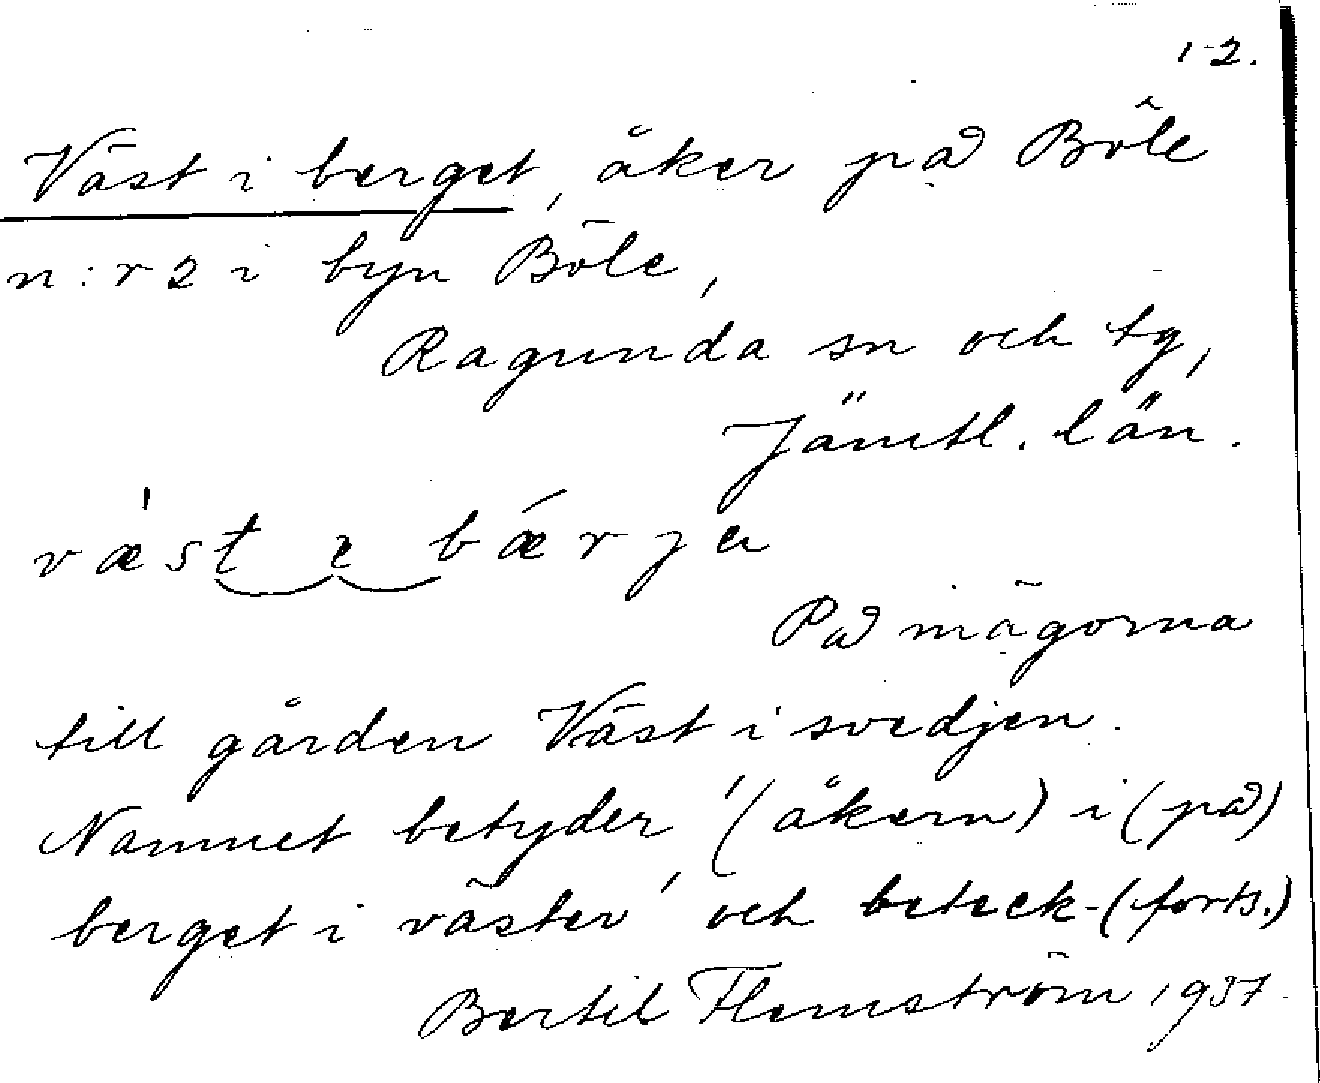 1-2.
Väst i berget, åker på Böle
n:r 2 i byn Böle,
Ragunda sn och tg,
Jämtl. län.
væ̀st e bǽrjen
På mägorna
till gården Väst i svedjen.
Namnet betyder '(åkern) i (på)
berget i väster' och beteck-(forts.)
Bertil Flemström 1937